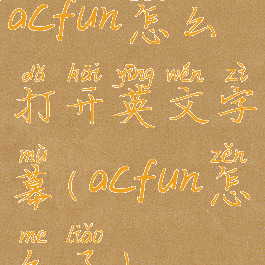 acfun怎么
dǎ kāi yīng wén zì
打开英文字
mù zěn
幕(acfun怎
me liǎo
么了)